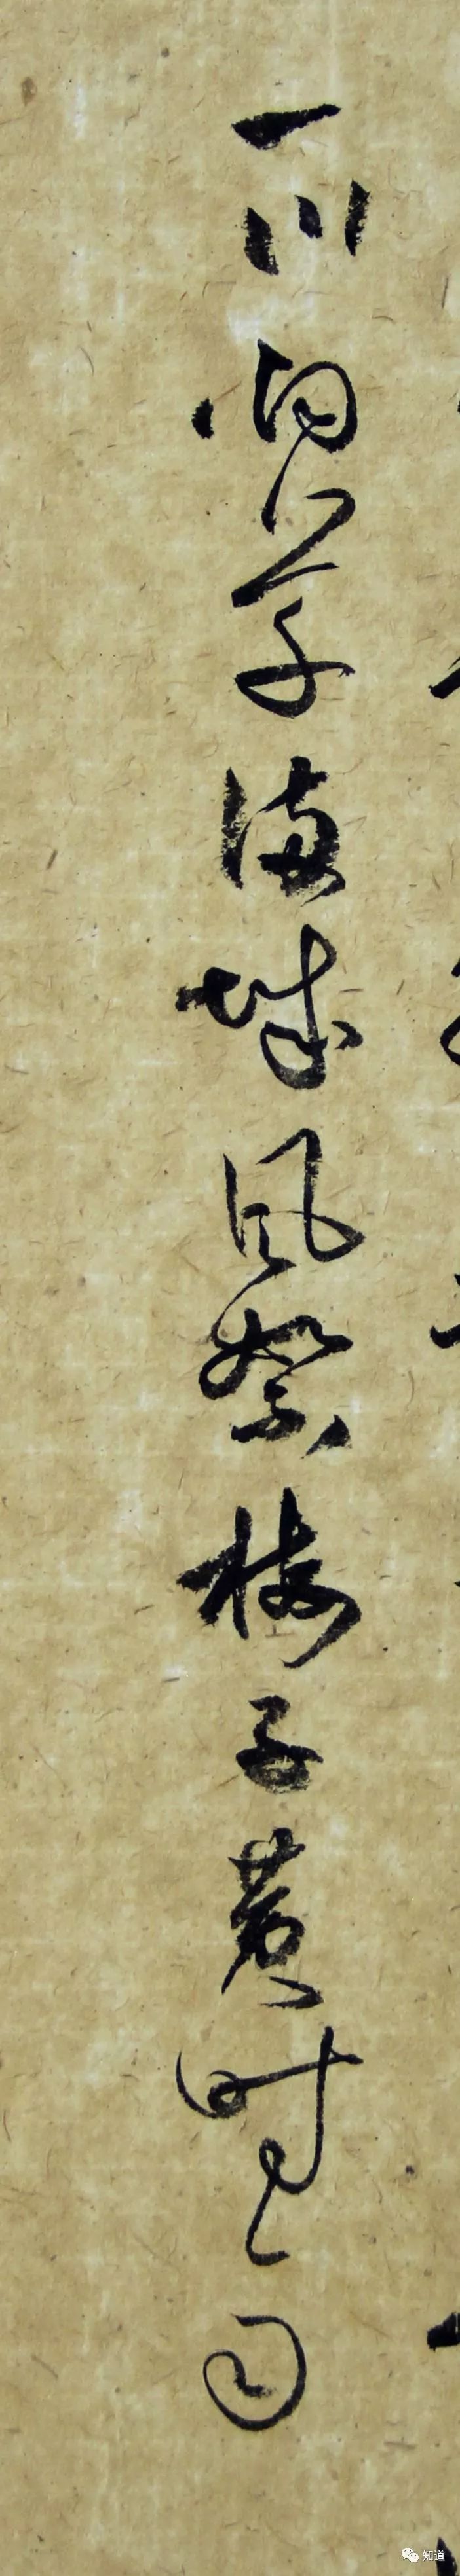 一川烟草滿城風絮梅子黄時雨
知道